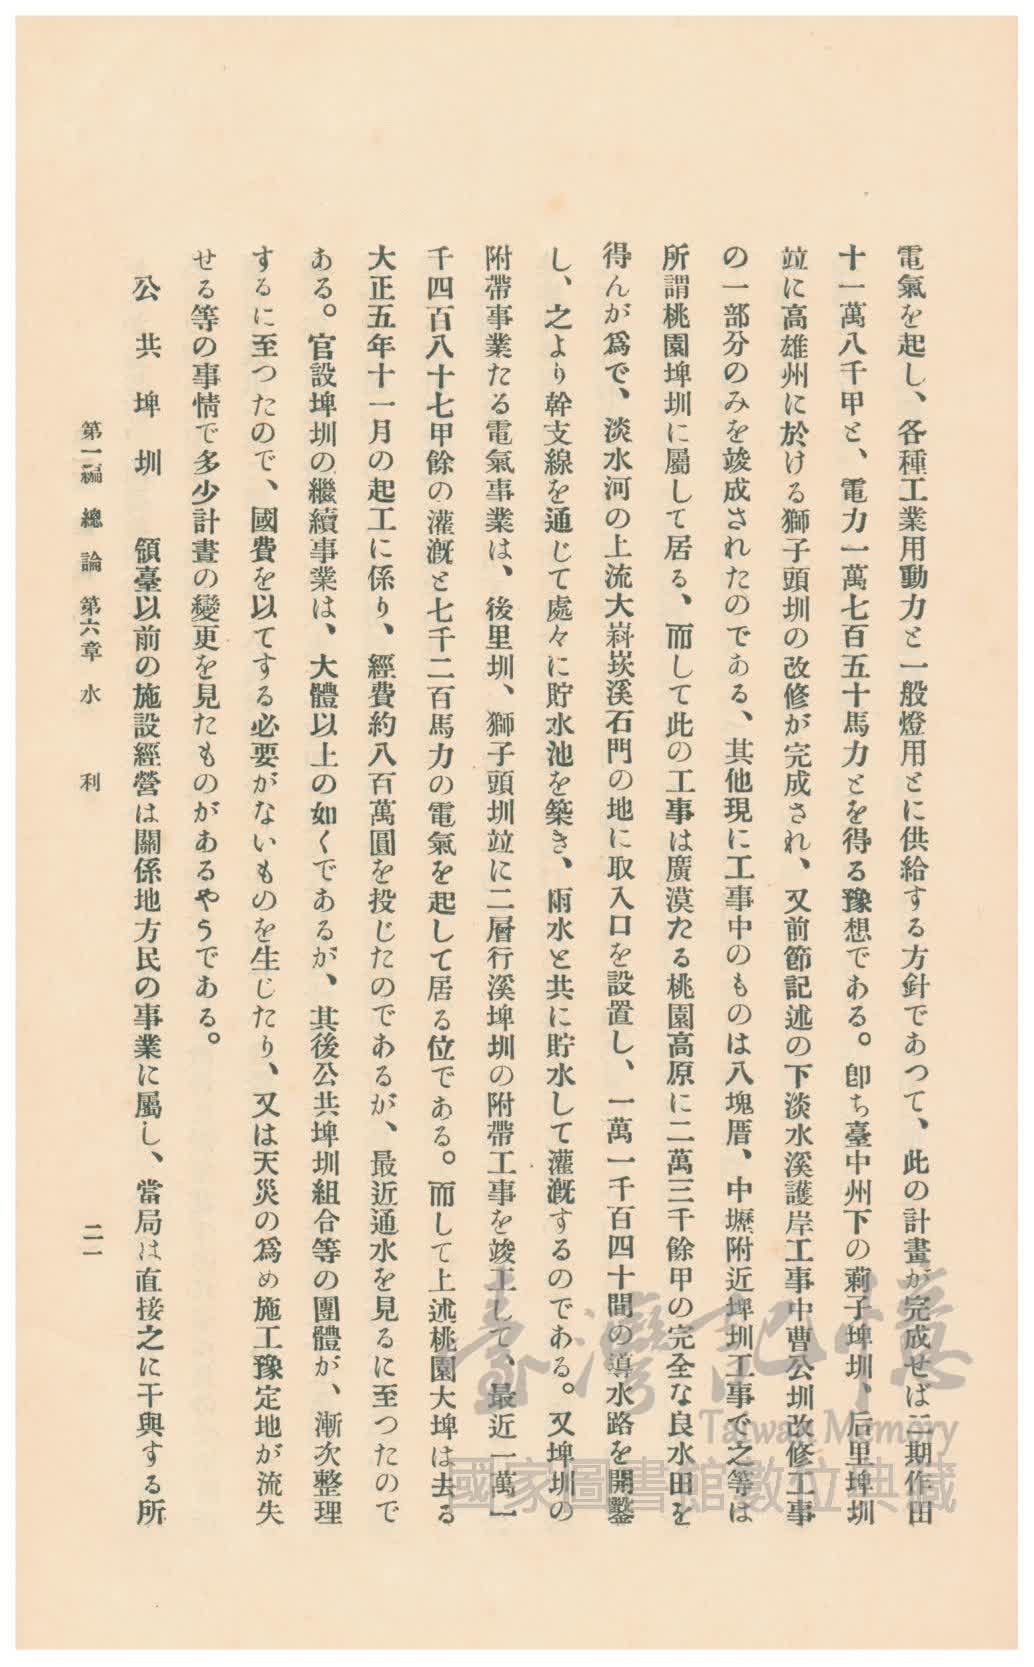 電氣を起し、各種工業用動力と一般燈用とに供給する方針であつて、此の計畫が完成せば二期作田
十一萬八千甲と、電力一萬七百五十馬力とを得る豫想である。卽ち臺中州下の莿子埤圳、后里埤圳
竝に高雄州に於ける獅子頭圳の改修が完成され、又前節記述の下淡水溪護岸工事中曹公圳改修工事
の一部分のみを竣成されたのである、其他現に工事中のものは八塊厝、中壢附近埤圳工事で之等は
所謂桃園埤圳に屬して居る、而して此の工事は廣漠たる桃園高原に二萬三千餘甲の完全な良水田を
得んが爲で、淡水河の上流大嵙崁溪石門の地に取入口を設置し、一萬一千百四十間の導水路を開鑿
し、之より幹支線を通じて處々に貯水池を築き、雨水と共に貯水して灌漑するのである。又埤圳の
附帶事業たる電氣事業は、後里圳、獅子頭圳竝に二層行溪埤圳の附帶工事を竣工して、最近一萬一
千四百八十七甲餘の灌漑と七千二百馬力の電氣を起して居る位である。而して上述桃園大埤は去る
大正五年十一月の起工に係り、經費約八百萬圓を投じたのであるが、最近通水を見るに至つたので
ある。官設埤圳の繼續事業は、大體以上の如くであるが、其後公共埤圳組合等の團體が、漸次整理
するに至つたので、國費を以てする必要がないものを生じたり、又は天災の爲め施工豫定地が流失
せる等の事情で多少計畫の變更を見たものがあるやうである。
公共埤圳　領臺以前の施設經營は關係地方民の事業に屬し、當局は直接之に干與する所
第一編 總論 第六章 水利
二一
臺灣記憶
Taiwan Memory
國家圖書館數位典藏